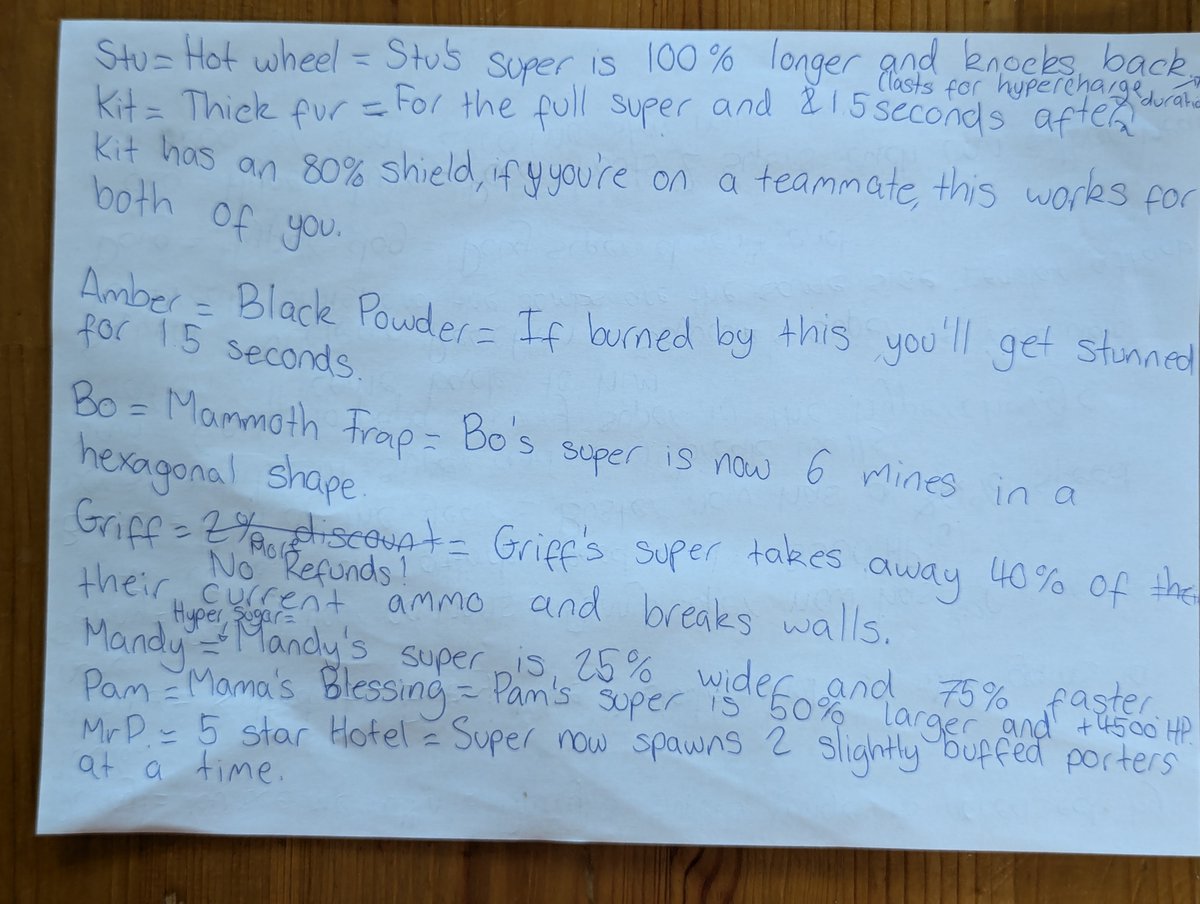 Stu = Hot wheel = Stu's super is 100% longer and knocks back.
(lasts for hypercharge
Kit = Thick fur = For the full super and & 1.5 seconds after
Kit has an 80% shield, if y you're on a teammate, this works for
both of you.
Amber = Black Powder = If burned by this you'll get stunned
for 1.5 seconds.
Bo = Mammoth Trap = Bo's super is now 6 mines in a
hexagonal shape.
Griff = 2% discount = Griff's super takes away 40% of the
More
No Refunds!
their current ammo and breaks walls.
Hyper Sugar =
Mandy = Mandy's super is 25% wider and 75% faster
Pam = Mama's Blessing = Pam's super is 50% larger and +4500 HP.
Mr P. = 5 star Hotel = Super now spawns 2 slightly buffed porters
at a time.